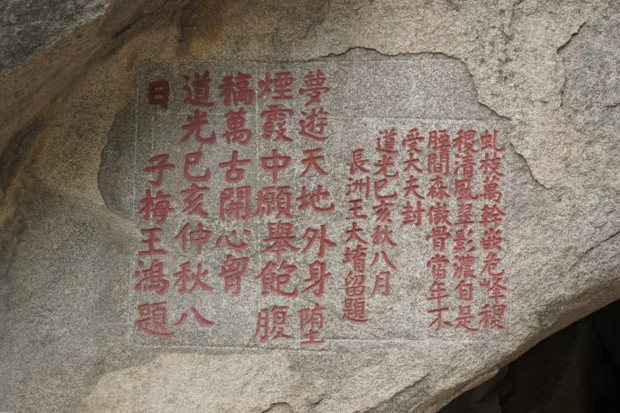 虬枝萬榦嵌危峰稷
稷清風翠影濃自是
腰間森傲骨當年不
受大夫封
道光己亥秋八月
長洲王大堉留題
夢遊天地外身堕
煙霞中願舉飽腹
稿萬古開心胷
道光己亥仲秋八
日 子梅王鴻題